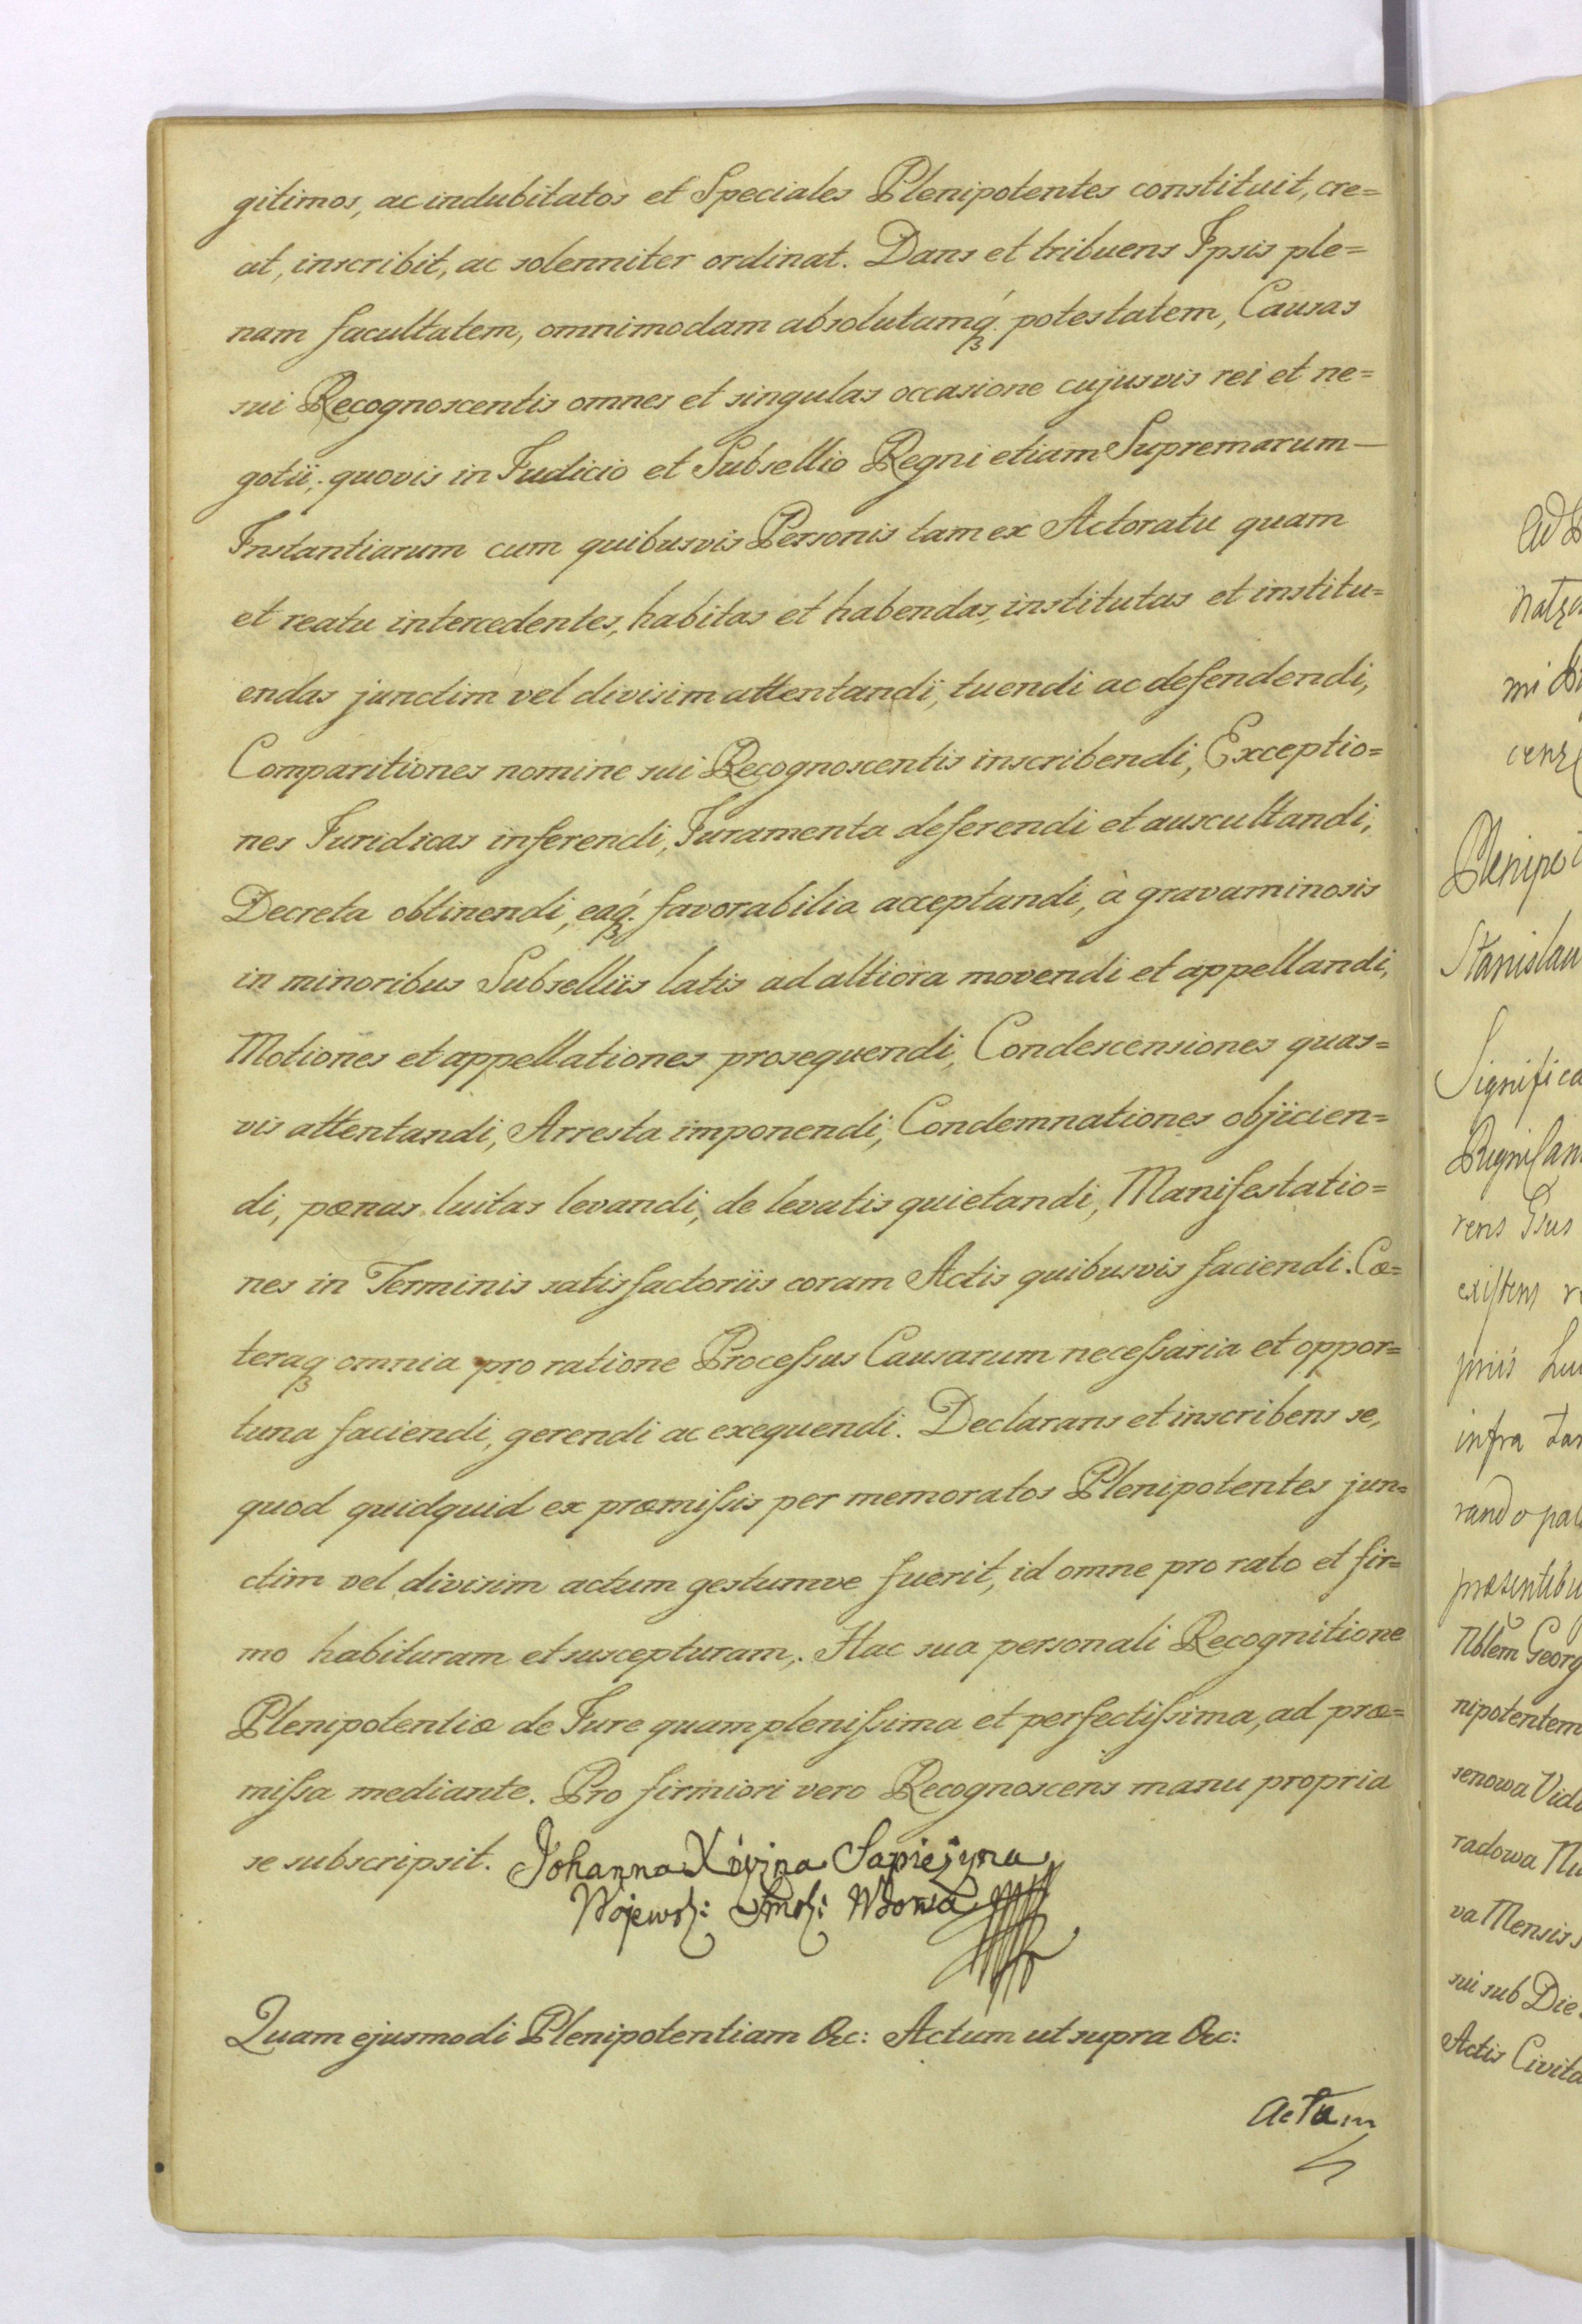 gitimos, ac indubitatos et Speciales Plenipotentes constituit, cre=
at, inscribit, ac solenniter ordinat. Dans et tribuens Ipsis ple=
nam facultatem, omnimodam absolutamq́ꝫ potestatem, Causas
sui Recognoscentis omnes et singulas occasione cujusvis rei et ne=
gotii, quovis in Judicio et Subsellio Regni etiam Supremarum —
Instantiarum cum quibusvis Personis tam ex Actoratu quam
et reatu intercedentes, habitas et habendas, institutas et institu=
endas junctim vel divisim attentandi, tuendi ac defendendi,
Comparitiones nomine sui Recognoscentis inscribendi, Exceptio=
nes Juridicas inferendi, Juramenta deferendi et auscultandi,
Decreta obtinendi, eaq́ꝫ favorabilia acceptandi, à gravaminosis
in minoribus Subselliis latis ad altiora movendi et appellandi,
Motiones et appellationes prosequendi, Condescensiones quas=
vis attentandi, Arresta imponendi, Condemnationes objicien=
di, pœnas luitas levandi, de levatis quietandi, Manifestatio=
nes in Terminis satisfactoriis coram Actis quibusvis faciendi. Cœ=
teraqꝫ omnia pro ratione Processus Causarum necessaria et oppor=
tuna faciendi, gerendi ac exequendi. Declarans et inscribens se,
quod quidquid ex præmissis per memoratos Plenipotentes jun=
ctim vel divisim actum gestumve fuerit, id omne pro rato et fir=
mo habituram et suscepturam, Hac sua personali Recognitione
Plenipotentiæ de Jure quam plenissima et perfectissima, ad præ=
missa mediante. Pro firmiori vero Recognoscens manu propria
se subscripsit. Johanna Sapieżyna
Wdowa
Quam ejusmodi Plenipotentiam &c: Actum ut supra &c:
Actum
Stanislau
Significa
infra
Nblem Georg
nipotentem
va Mensis
sui sub Die
Actis Civita